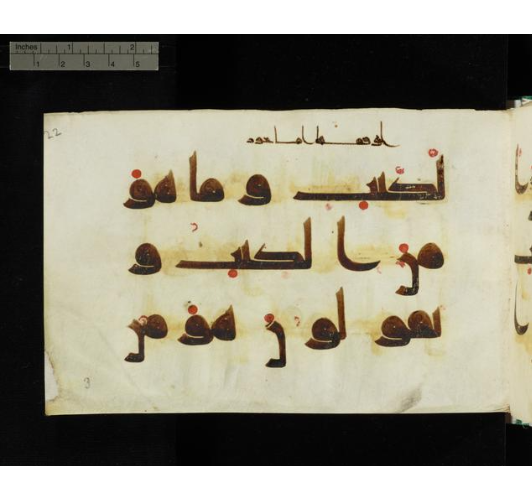 Inches 1 2
1 2 3 4 5
22
لكتب و ما هو
من ا لكتب و
يقولون هو من
3